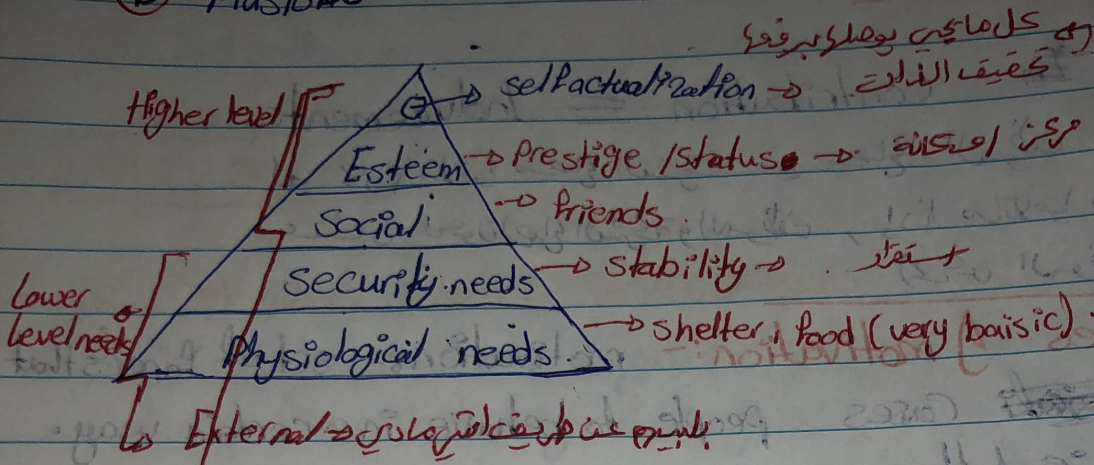 كل ما يجي يوصلها يرفعها
Higher level
selfactualization → تحقيق الذات
Esteem → Prestige /status → مركز / مكانة
Social → friends.
Security needs → stability → استقرار
Lower level needs
Physiological needs. → shelter, food (very baisic)
External → عن طريق شي مادي
cases people